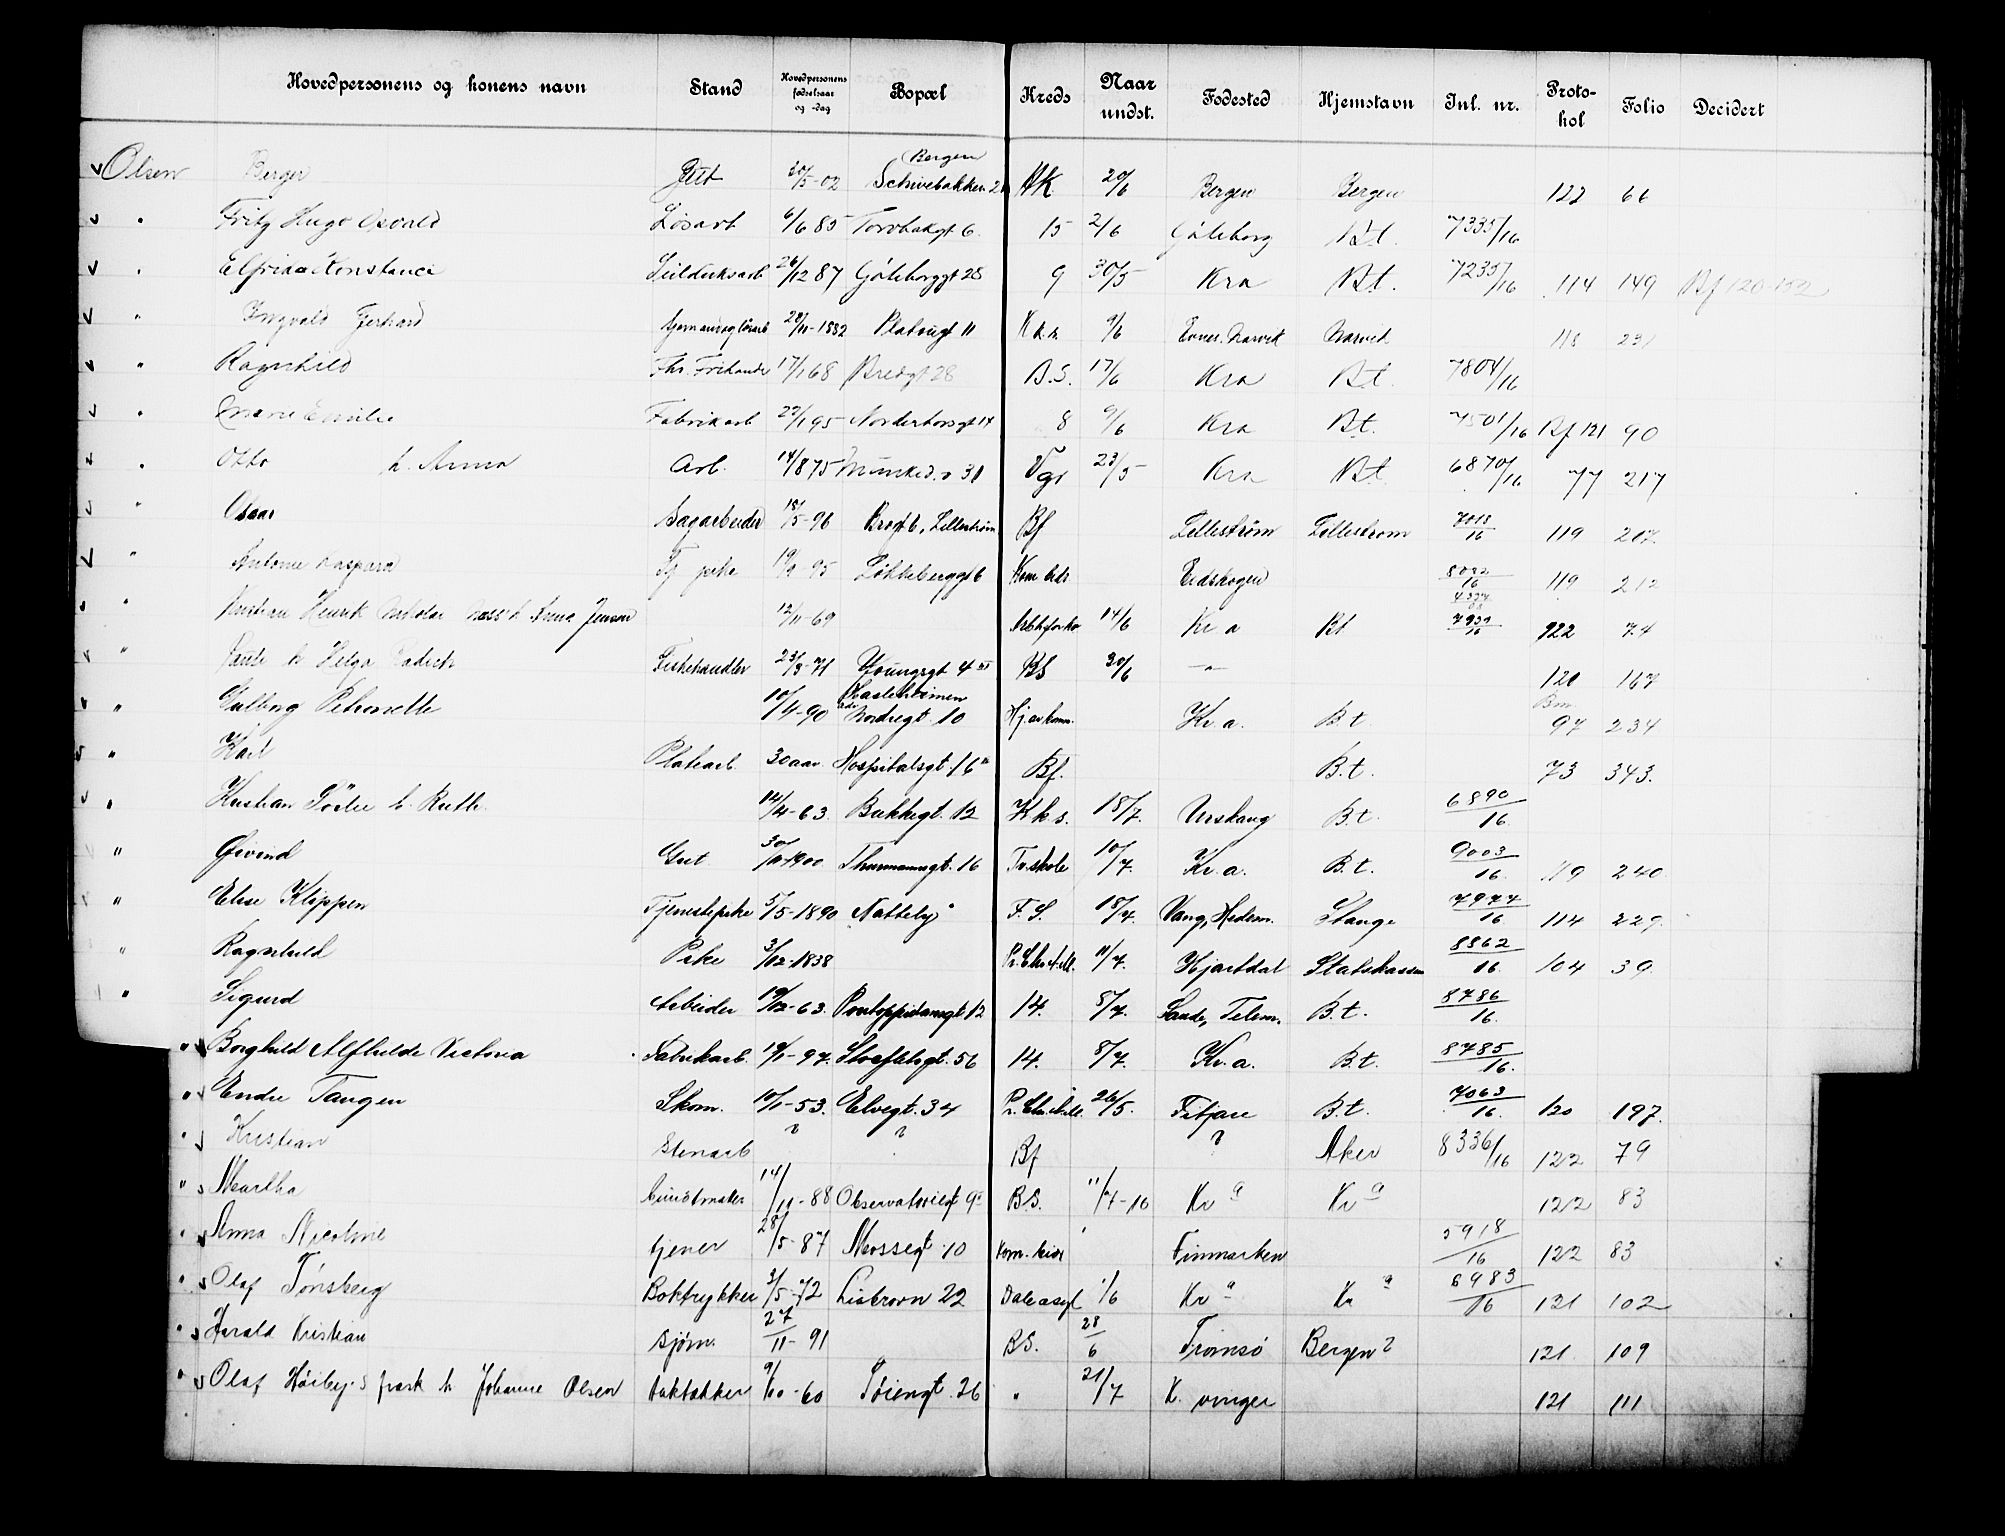 Hovedpersonens og konens navn Stand Hovedpersonens fødselsaar og -dag Bopæl Kreds Naar undst. Fødested Hjemstavn Inl. nr. Protokol Folio Decidert
Olsen Berger Gut 20/5-02 Bergen Skivebakken Bergen Bergen 122 66
" Fritz Hugo Osvald Løsarb 6/6 85 Torvbakgt 6 15 2/6 Göteborg B.t. 7335/16
" Elfrida Konstance 26/12 87 Göteborggt 28 9 30/5 Kra B.t. 7235/16 114 149 Bf 120-152
" Ingvald Gerhard 28/11-1882 Platougt 11 Kks. 9/6 Evnes. Narvik Narvik 118 231
" Ragnhild Fhv. Frikande 17/1 68 Bredgt 28 B.S. 17/6 Kra B.t. 7804/16
" Marie Emilie Fabrikarb 22/1 95 Nordenborsgt 14 8 9/6 Kra B.t. 7501/16 Bf 121 90
" Otto h. Anna Arb. 14/8 75 Munkedv 31 Vgs 23/5 Kra B.t. 6870/16 77 217
" Oscar Sagarbeider 18/5-96 Brogt 6, Lillestrøm Bf Lillestrøm Lillestrøm 7018/16 119 207
" Antonie Kaspara Tj pike 19/9-95 Løkkeberggt 6 Eidskogen 8032/16 119 212
" Kristian Henrik Nikolai Næss h Anna Jensen 12/11-69 14/6 Kr a Bt 7939/16 122 74
" h Helga Fiskehandler 23/8-71 Youngsgt 4 BS 30/6 120 167
" Valborg Petronelle 10/4-90 Nordregt. 10 Kr.a. B.t. Bm. 97 234
" Karl Platearb. 30 aar Hospitalsgt. 16 Bf. B.t. 73 343.
" Kristian h. Ruth 12/4-63. Bakkegt. 12 K.k.s. 18/7. Urskaug B.t. 6890/16.
" Øivind Gut 30/10-1900 Thurmannsgt. 16 Tv.skole 10/7. Kr.a. B.t. 9003/16. 119 240
" Elise Klippen Tjenestepike 5/5-1890 "Natteby" F.S. 18/7. Vang, Hedem. Stange 7977/16 114 229.
" Ragnhild Pike 3/12-1838 11/7. Hjartdal Statskassen 8862/16. 104 39
" Sigurd Arbeider 19/12-63. Pontoppidansgt. 12 14. 8/7. Sande, Telem. B.t. 8786/16.
" Borghild Alfhilde Victoria Fabrikarb. 19/1-97. Stolfelsgt. 56 14. 8/7. Kr.a. B.t. 8785/16.
" Endre Tangen Skom. 10/1-53. Elvegt. 34 26/5. Fitjare B.t. 7063/16. 120 197.
" Kristian Stenarb ? ? Bf ? Aker 8336/16 122 79
" Martha 14/11-88 Observatoriegt 9 B.S. 11/7-16 Kr a Kr a 122 83
" Anna Nicoline tjener 28/5-87 Mossegt. 10 Kom. Finmarken 5918/16 122 83
" Olaf Tønsberg Boktrykker 3/5-72 Lisbrovn 22 Daleasyl 1/6 Kr a Kr a 6983/16 121 102
" Harald Kristian sjøm. 27/11-91 B.S. 28/6 Tromsø Bergen? 121 109
" Olaf Høiby s frask h Johanne Olsen taktækker 9/10-60 Tøiengt. 26 " 21/7 K. vinger 121 111